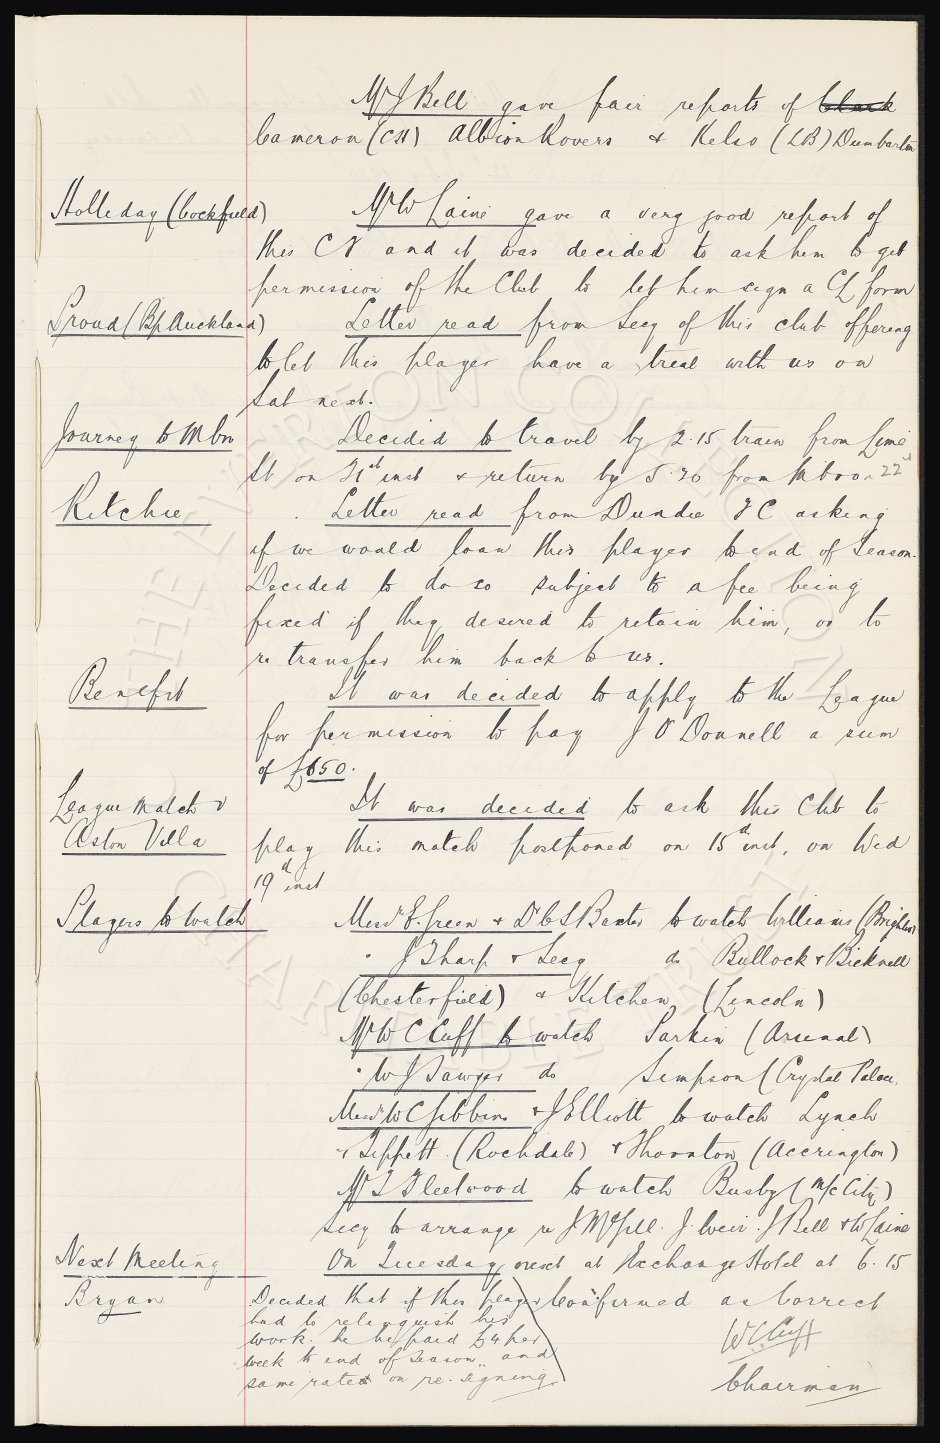 Mr J Bell gave fair reports of black
Cameron (CH) Albion Rovers & Kelso (LB) Dumbarton
Holliday (Cockfield)
Mr W Laine gave a very good report of
this CF and it was decided to ask him to get
permission of the Club to let him sign a CL form
Proud (Bp Auckland)
Letter read from Secy of this club offering
to let this player have a trial with us on
Sat next.
Journey to Mbro
Decided to travel by 2.15 train from Lime
St on 21st inst & return by 5.20 from Mbro on 22nd
Ritchie
Letter read from Dundee F C asking
if we would loan this player to end of Season.
Decided to do so subject to a fee being
fixed if they desired to retain him, or to
re transfer him back to us.
Benefit
It was decided to apply to the League
for permission to pay J O'Donnell a sum
of £650.
League Match v
Aston Villa
It was decided to ask this Club to
play this match postponed on 15th inst, on Wed
19th inst
Players to Watch
Messrs E. Green & Dr C S Baxter to watch Williams (Brighton)
" J Sharp & Secy do Bullock & Bicknell
(Chesterfield) & Kitchen (Lincoln)
Mr W C Cuff to watch Parkin (Arsenal)
" W J Sawyer do Simpson (Crystal Palace)
Messrs W C Gibbins & J Elliott to watch Lynch
& Tippett (Rochdale) & Thornton (Accrington)
Mr T Fleetwood to watch Busby (M/c City)
Secy to arrange re J McGill. J. Weir. J Bell & W Laine
Next Meeting
On Tuesday next at Exchange Hotel at 6.15
Bryan
Decided that if this player
had to relinquish his
work he be paid £4 per
week to end of Season, and
same rates on re-signing
Confirmed as Correct
W C Cuff
Chairman
THE EVERTON COLLECTION
CHARITABLE TRUST